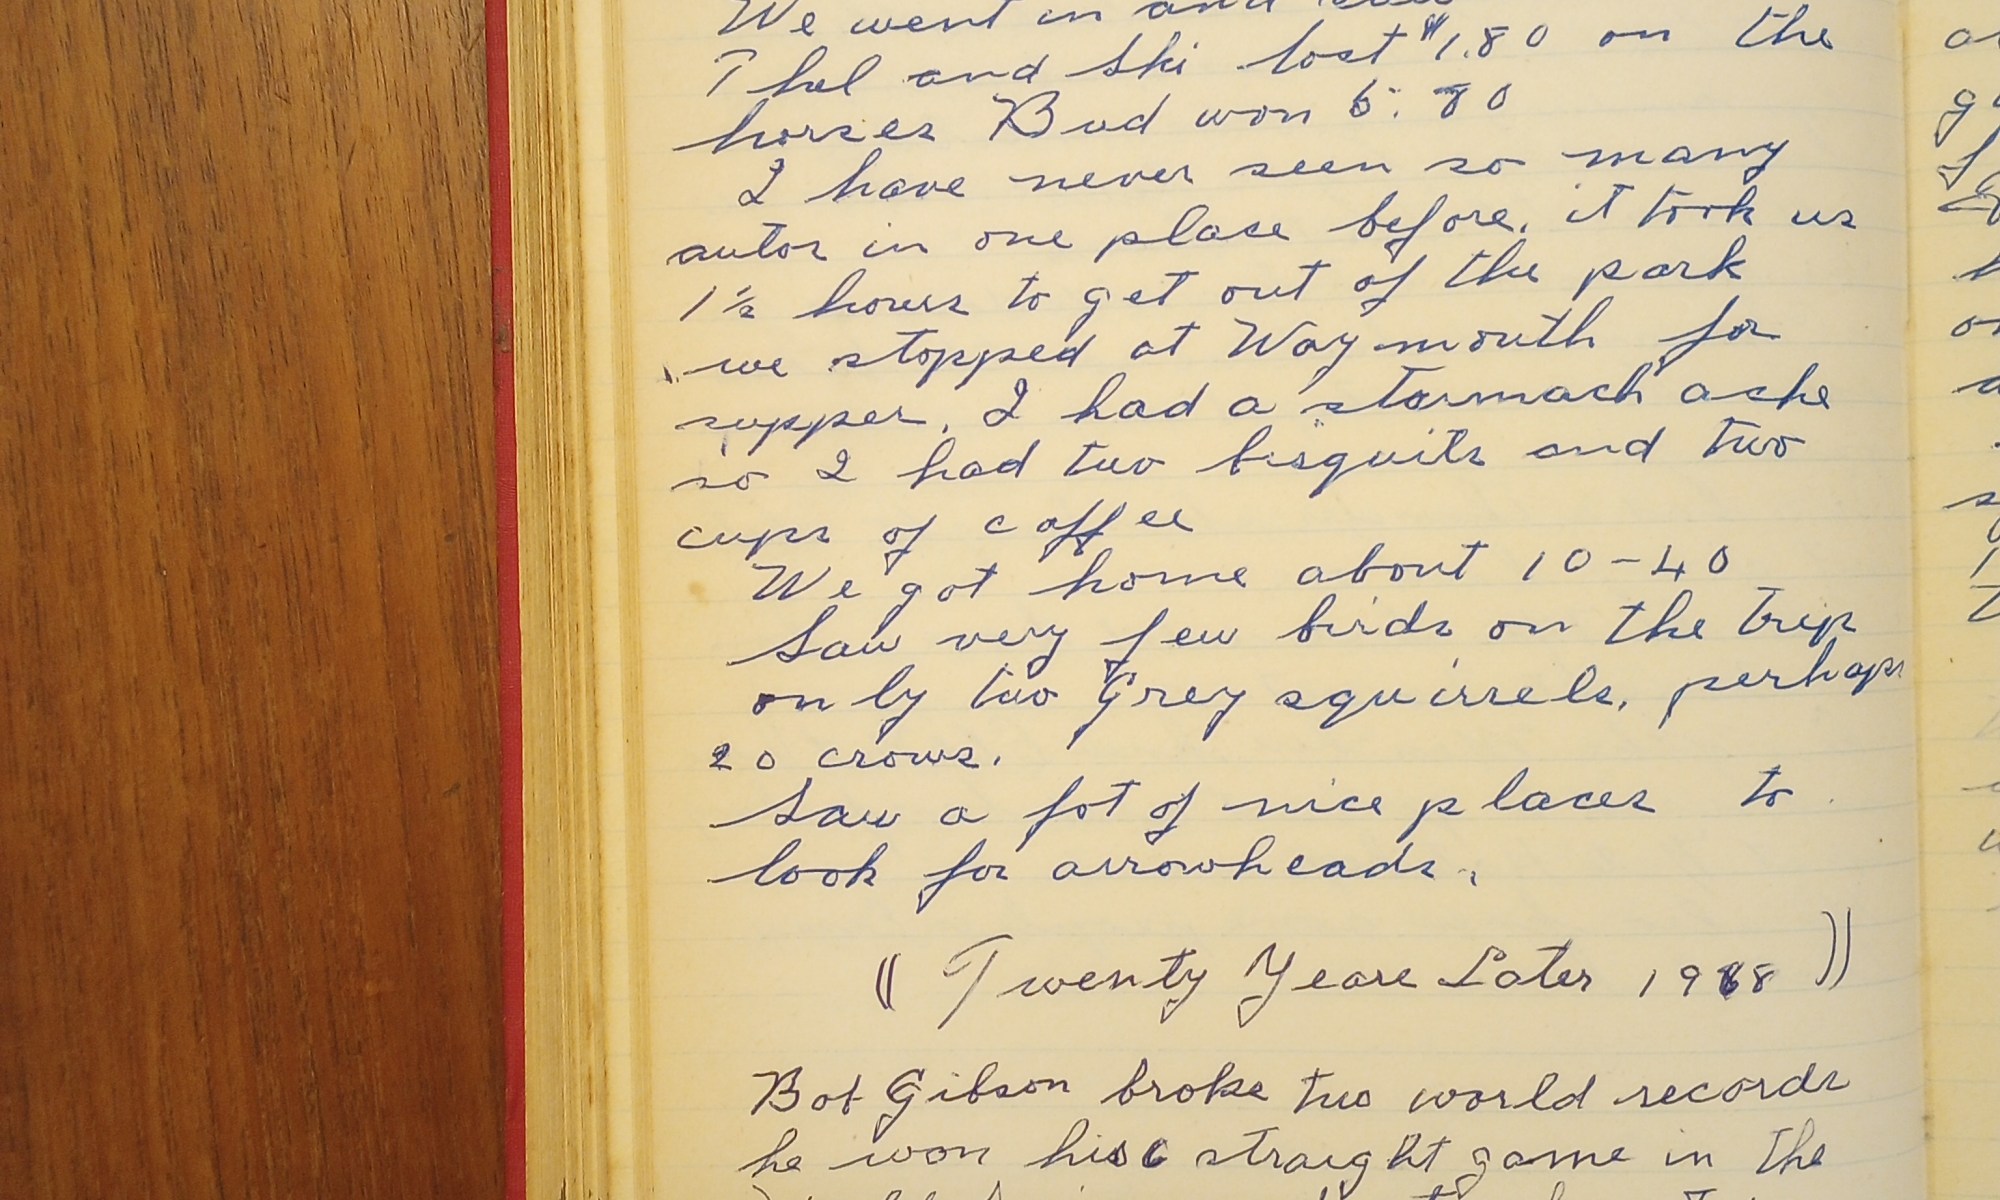 We went in and
Thel and Ski lost $1.80 on the
horses Bud won 6.80
I have never seen so many
autos in one place before. it took us
1½ hours to get out of the park
we stopped at Waymouth for
supper. I had a stormach ache
so I had two bisquits and two
cups of coffee
We got home about 10-40
Saw very few birds on the trip
only two Grey squirrels, perhaps
20 crows.
Saw a lot of nice places to
look for arrowheads.
(( Twenty Years Later 1968 ))
Bob Gibson broke two world records
he won his 6 straight game in the